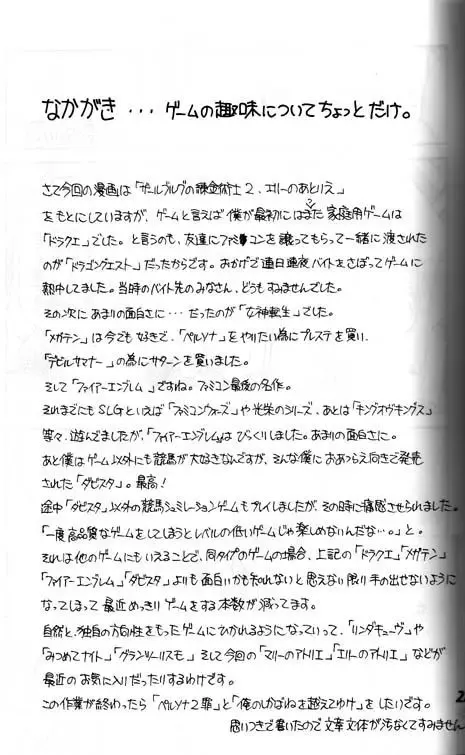 なかがき ･･･ ゲームの趣味についてちょっとだけ。
さて今回の漫画は「ザールブルグの錬金術士2、エリーのあとりえ」
をもとにしていますが、ゲームと言えば僕が最初にはまった家庭用ゲームは
「ドラクエ」でした。と言うのも、友達にファミコンを譲ってもらって一緒に渡された
のが「ドラゴンクエスト」だったからです。おかげで連日連夜バイトをさぼってゲームに
熱中してました。当時のバイト先のみなさん、どうもすみませんでした。
その次にあまりの面白さに･･･だったのが「女神転生」でした。
「メガテン」は今でも好きで、「ペルソナ」をやりたい為にプレステを買い、
「デビルサマナー」の為にサターンを買いました。
そして「ファイアーエンブレム」ですね。ファミコン最後の名作。
それまでにもSLGといえば「ファミコンウォーズ」や光栄のシリーズ、あとは「キングオブキングス」
等々、遊んでましたが、「ファイアーエンブレム」はびっくりしました。あまりの面白さに。
あと僕はゲーム以外にも競馬が大好きなんですが、そんな僕におあつらえ向きで発売
された「ダビスタ」。最高！
途中「ダビスタ」以外の競馬シュミレーションゲームもプレイしましたが、その時に痛感させられました。
「一度高品質なゲームをしてしまうとレベルの低いゲームじゃ楽しめないんだな…。」と。
それは他のゲームにもいえることで、同タイプのゲームの場合、上記の「ドラクエ」「メガテン」
「ファイアーエンブレム」「ダビスタ」よりも面白いかも知れないと思えない限り手の出せないように
なってしまって最近めっきりゲームをする本数が減ってます。
自然と、独自の方向性をもったゲームにひかれるようになっていって、「リンダキューブ」や
「みつめてナイト」「グランツーリスモ」そして今回の「マリーのアトリエ」「エリーのアトリエ」などが
最近のお気に入りだったりするわけです。
この作業が終わったら「ペルソナ2罪」と「俺のしかばねを越えてゆけ」をしたいです。
思いつきで書いたので文章文体が汚なくてすみません
2